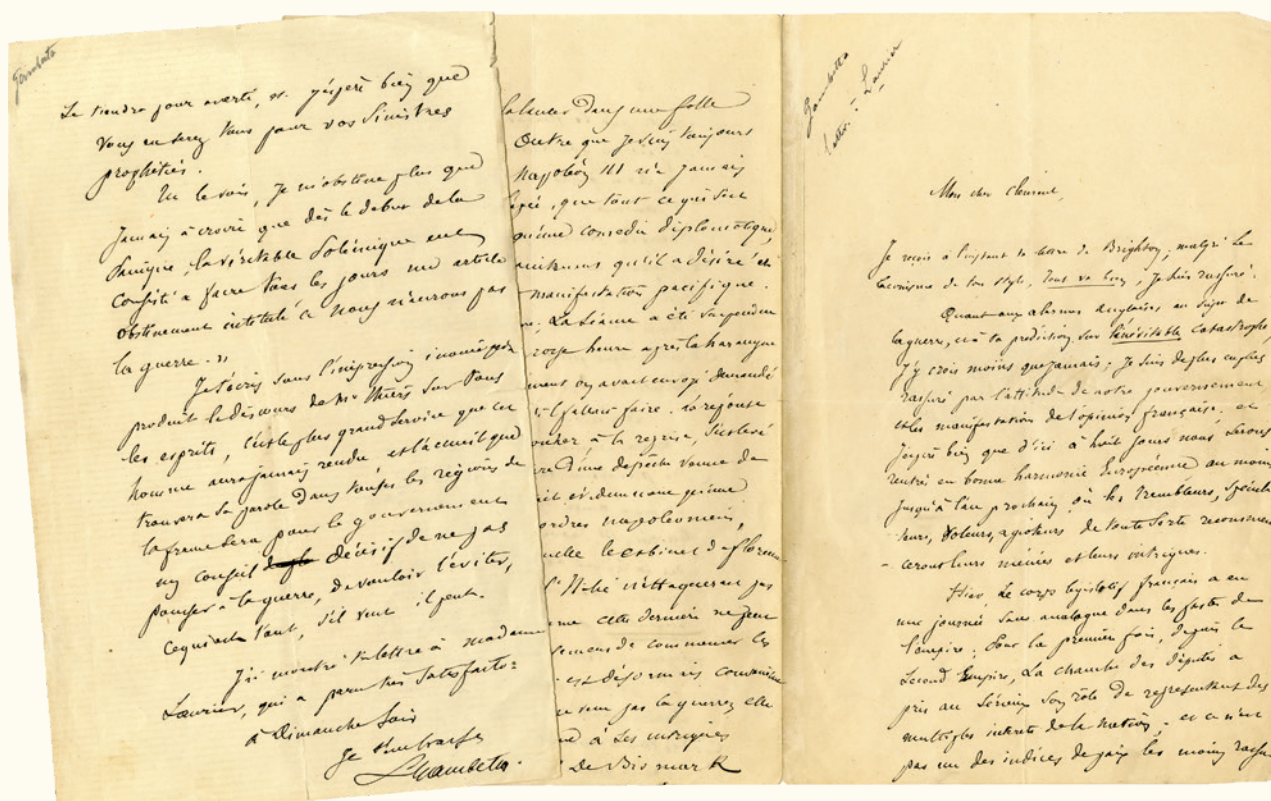 Gambetta
Le tiendra pour averti, et j'espère bien que
vous en serez tous pour vos sinistres
prophéties.
Tu le vois, je m'obstine plus que
jamais à croire que dès le début de la
panique, la véritable polémique eut
consisté à faire tous les jours un article
obstinément intitulé « nous n'aurons pas
la guerre. »
Je t'écris sous l'impression inouïe qu'a
produit le discours de Mr Thiers sur tous
les esprits, c'est le plus grand service que cet
homme aura jamais rendu et l'accueil que
trouvera sa parole dans toutes les régions de
la france sera pour le gouvernement
un conseil décisif de ne pas
pousser à la guerre, de vouloir l'éviter,
ce qui est tout, s'il veut il peut.
J'ai montré ta lettre à madame
Laurier, qui a paru très satisfaite =
à Dimanche soir
Je t'embrasse
L Gambetta.
lancer dans une folle
Outre que je suis toujours
Napoléon III n'a jamais
que tout ce qui s'est
qu'une comédie diplomatique,
qu'il a désiré et
manifestation pacifique.
La Séance a été suspendue
heure après la harangue
on avait envoyé demandé
il fallait faire. la réponse
à la reprise, s'est levé
d'une dépêche venue de
évidemment
ordres napoléoniens,
le cabinet de florence
l'Italie n'attaquerait pas
cette dernière ne peut
de commencer les
est désormais convaincue
veut pas la guerre, elle
à ses intrigues
De Bismark
Gambetta
Lettre à Laurier
Mon cher Clément,
Je reçois à l'instant ta lettre de Brighton; malgré le
laconisme de ton style, tout va bien, je suis rassuré.
Quant aux alarmes anglaises, au sujet de
la guerre, et à ta prédiction sur l'inévitable catastrophe,
j'y crois moins que jamais; Je suis de plus en plus
rassuré par l'attitude de notre gouvernement
et les manifestations de l'opinion française. et
J'espère bien que d'ici à huit jours nous serons
rentré en bonne harmonie Européenne au moins
jusqu'à l'an prochain où les trembleurs, spécula
teurs, voleurs, agioteurs de toute sorte recommen
- ceront leurs menées et leurs intrigues.
Hier, le corps législatif français a eu
une journée sans analogue dans les fastes de
l'empire; Pour la première fois, depuis le
second Empire, La chambre des députés a
pris au sérieux son rôle de représentant des
multiples intérêts de la nation; et ce n'est
pas un des indices de paix les moins rassu